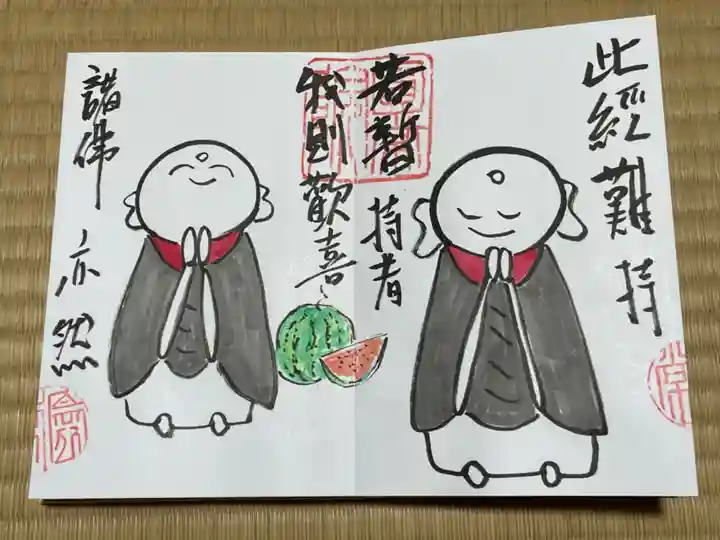 此經難持
若暫持者
我則歡喜
諸佛亦然